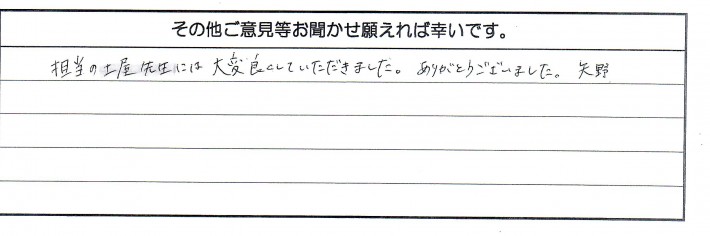 その他ご意見等お聞かせ願えれば幸いです。
担当の土屋先生には大変良くしていただきました。ありがとうございました。矢野